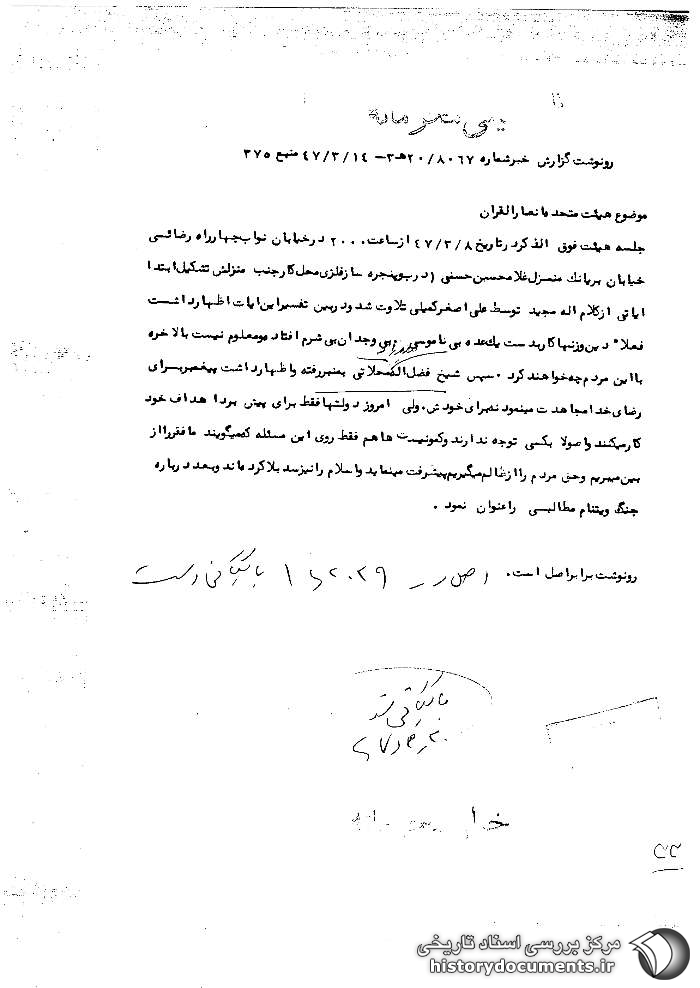 رونوشت گزارش خبر شماره ۲۰/۸۰۶۷هـ۳ – ۴۷/۳/۱۴ منبع ۳۷۵
موضوع هیئت متحده انصار القران
جلسه هیئت فوق الذکر در تاریخ ۴۷/۳/۸ از ساعت ۲۰۰۰ در خیابان نواب چهارراه رضائی
خیابان بریانك منزل غلامحسین حسنی (درب و پنجره ساز فلزی محل کار جنب منزلش تشکیل ابتدا
ایاتی از کلام اله مجید توسط علی اصغر کمیلی تلاوت شد و در بین تفسیر این ایات اظهار داشت
فعلا دین وزنها کار بدست یك عده بی ناموس و بی وجدان بی شرم افتاده و معلوم نیست بالاخره
با این مردم چه خواهند کرد . سپس شیخ فضل اله محلاتی بمنبر رفته و اظهار داشت پیغمبر برای
رضای خدا مجاهدت مینمود نه برای خودش. ولی امروز دولتها فقط برای پیش برد اهداف خود
کار میکنند و اصولا بکسی توجه ندارند و کمونیست ها هم فقط روی این مسئله که میگویند ما فقر را از
بین میبریم و حق مردم را از ظالم میگیریم پیشرفت مینماید و اسلام را نیز سد بلا کرده اند و بعد درباره
جنگ ویتنام مطالبی را عنوان نمود .
رونوشت برابر اصل است. اصل در ۲۰۲۹ بایگانی است
بایگانی شود
۲۲
مرکز بررسی اسناد تاریخی
historydocuments.ir